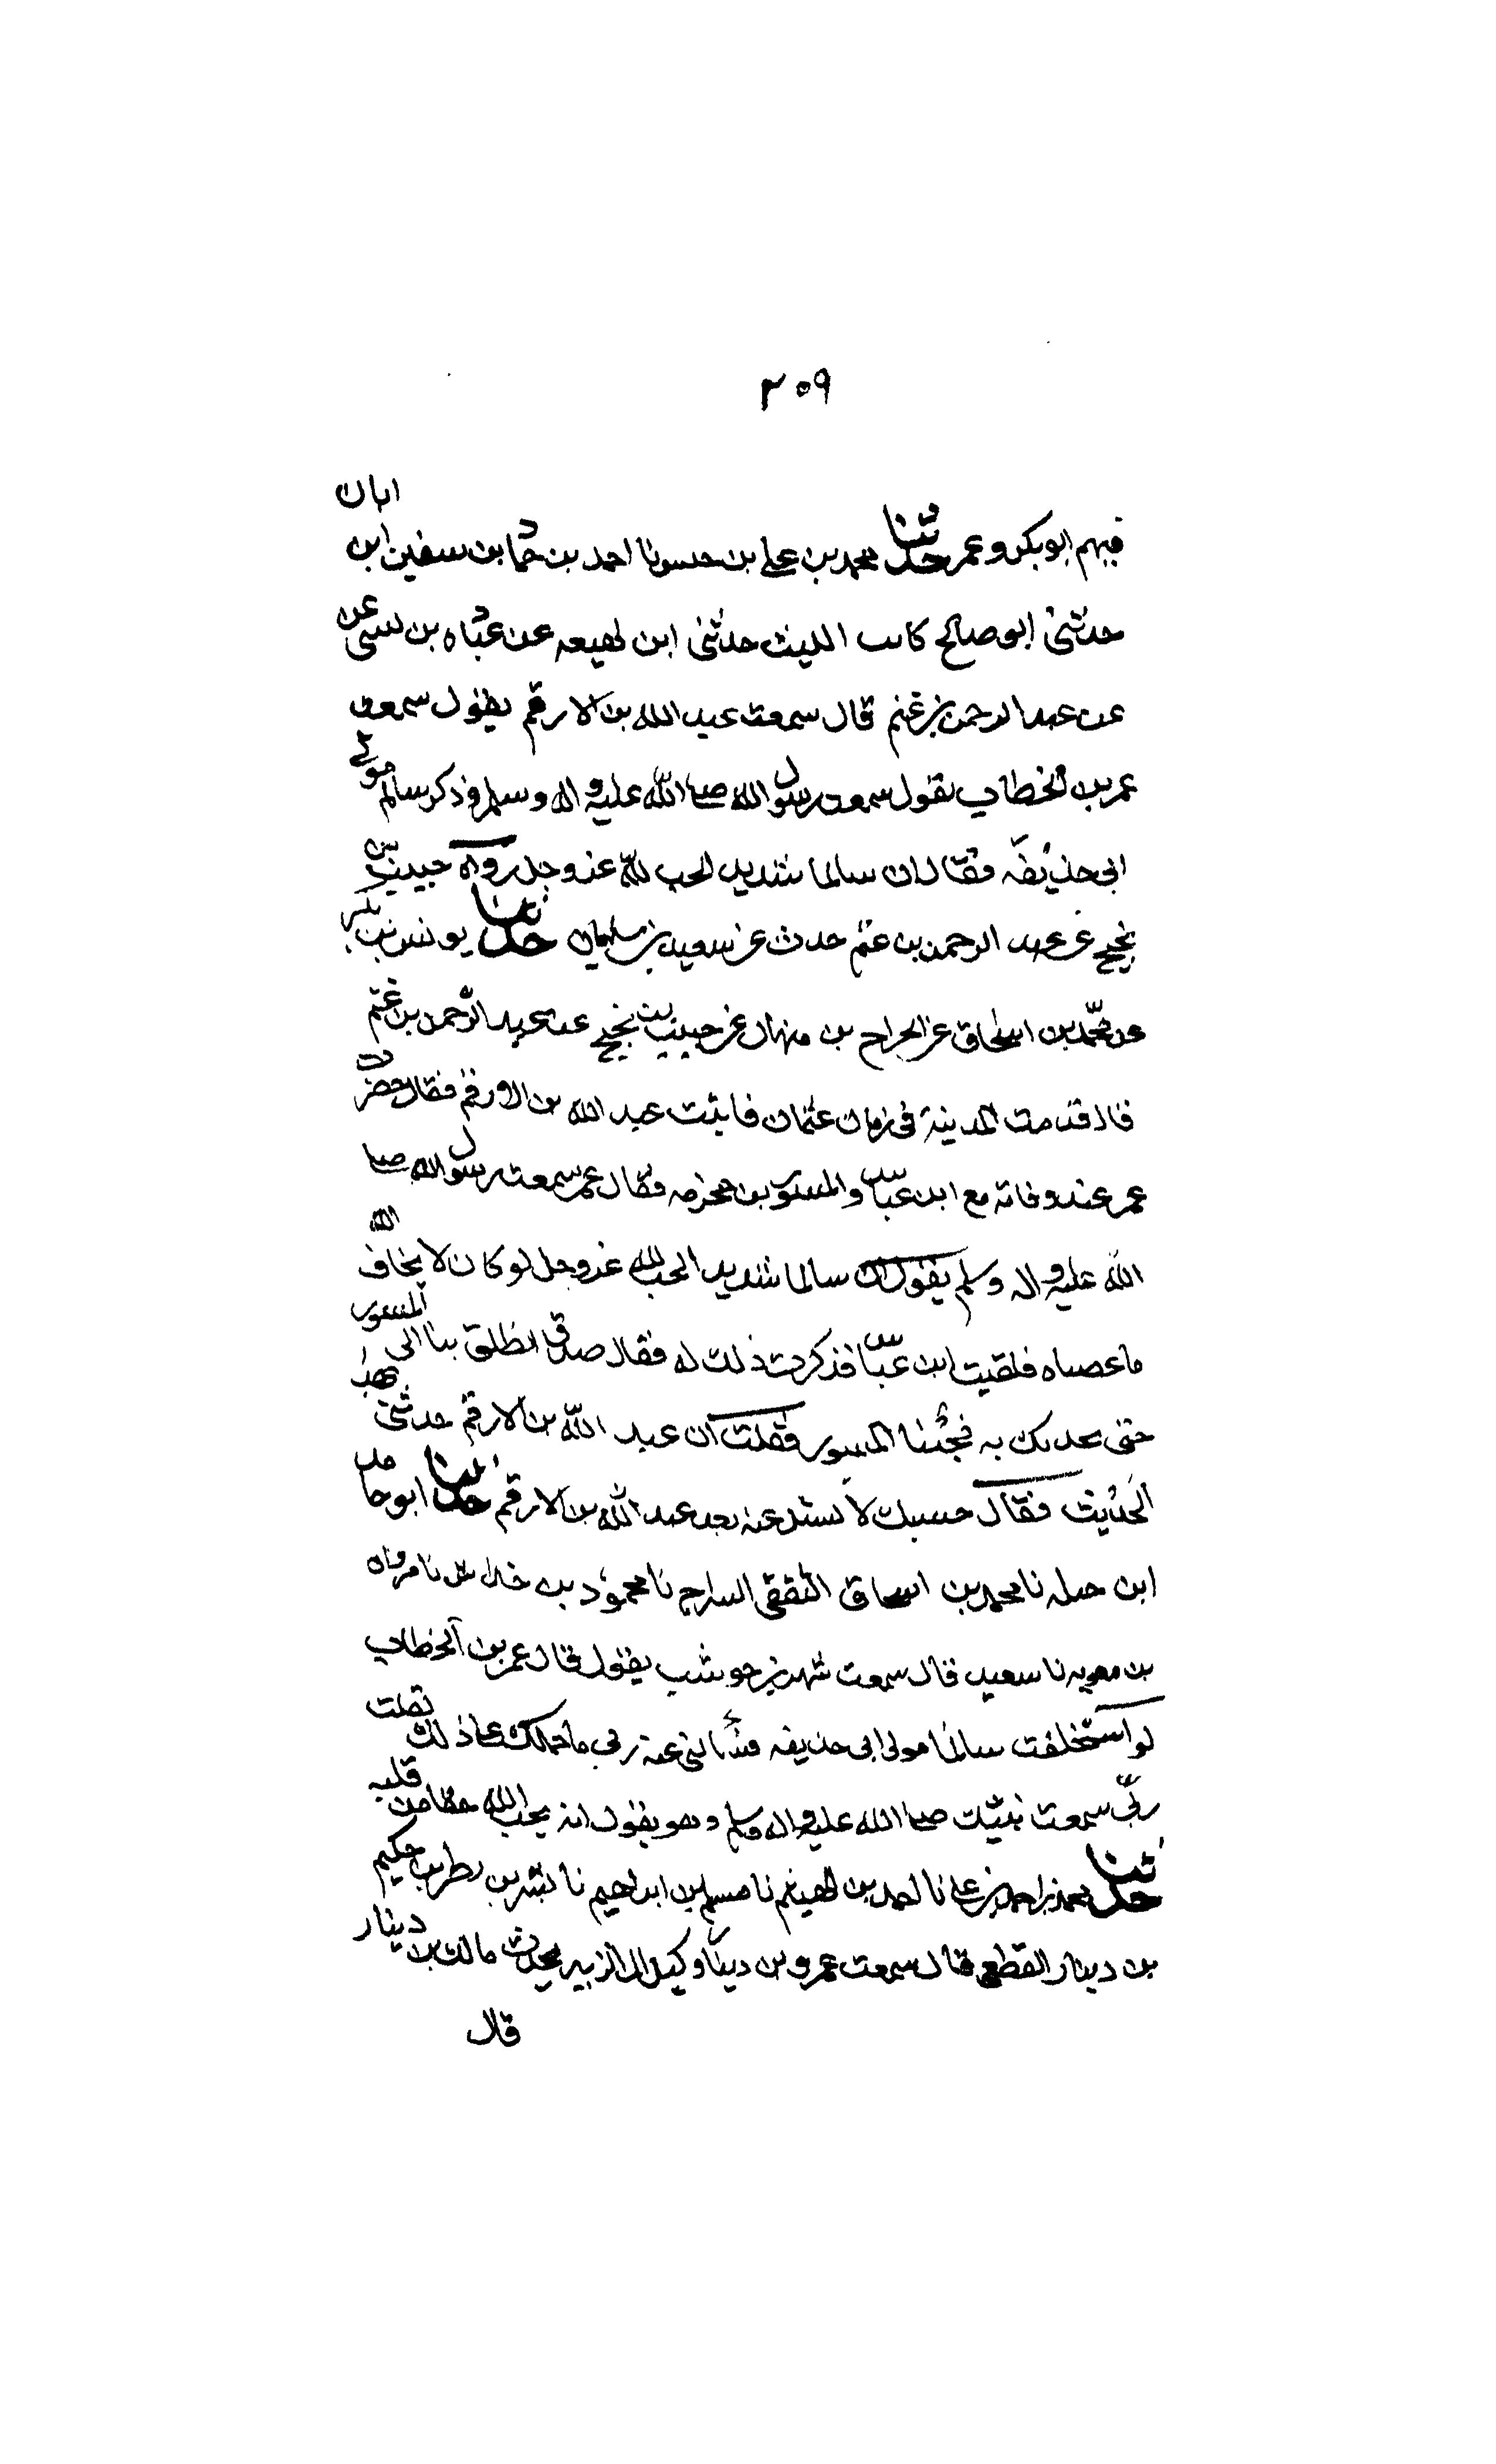 ٢٠٩
فيهم ابو بكر وعمر حدثنا محمد بن علي بن حسونا احمد بن حماد بن سفين ابن ابان
حدثني ابو صالح كاتب الليث حدثني ابن لهيعه عن عباده بن نسي عن
عن عبد الرحمن بن غنم قال سمعت عبد الله بن الارقم يقول سمعت
عمر بن الخطاب يقول سمعت رسول الله صلى الله عليه واله وسلم وذكر سالم مولى
ابي حذيفة فقال ان سالما شديد الحب لله عز وجل رواه حبيب بن
نجيح عن عبد الرحمن بن غنم حدث عن سعيد بن سليمان حدثنا يونس بن بكير
عن محمد بن اسحاق عن الجراح بن منهال عن حبيب بن نجيح عن عبد الرحمن بن غنم
قال قدمت المدينة في زمان عثمان فاتيت عبد الله بن الارقم فقال حضرت
عمر عند وفاته مع ابن عباس والمسور بن مخرمه فقال عمر سمعت رسول الله صلى
الله عليه واله وسلم يقول ان سالما شديد الحب لله عز وجل لو كان لا يخاف الله
ما عصاه فلقيت ابن عباس فذكرت ذلك له فقال صدق انطلق بنا الى المسور
حتى يحدثك به فجئنا المسور فقلت ان عبد الله بن الارقم حدثني بهذا
الحديث فقال حسبك لا تسئل عنه بعد عبد الله بن الارقم حدثنا ابو حامد
ابن جبله نا محمد بن اسحاق الثقفي السراج نا محمود بن خداش نا مروان
بن معويه نا سعيد قال سمعت شهر بن حوشب يقول قال عمر بن الخطاب
لو استخلفت سالما مولى ابي حذيفه فسألني عنه ربي ما حملك على ذلك لقلت
ربّ سمعت نبيّك صلى الله عليه واله وسلم وهو يقول انه يحب الله حقا من قلبه
حدثنا محمد بن احمد بن علي نا احمد بن الهيثم نا مسلم بن ابراهيم نا بشر بن مطر بن حكيم
بن دينار القطعي قال سمعت عمرو بن دينار وكيل ال الزبير يحدث مالك بن دينار
قال